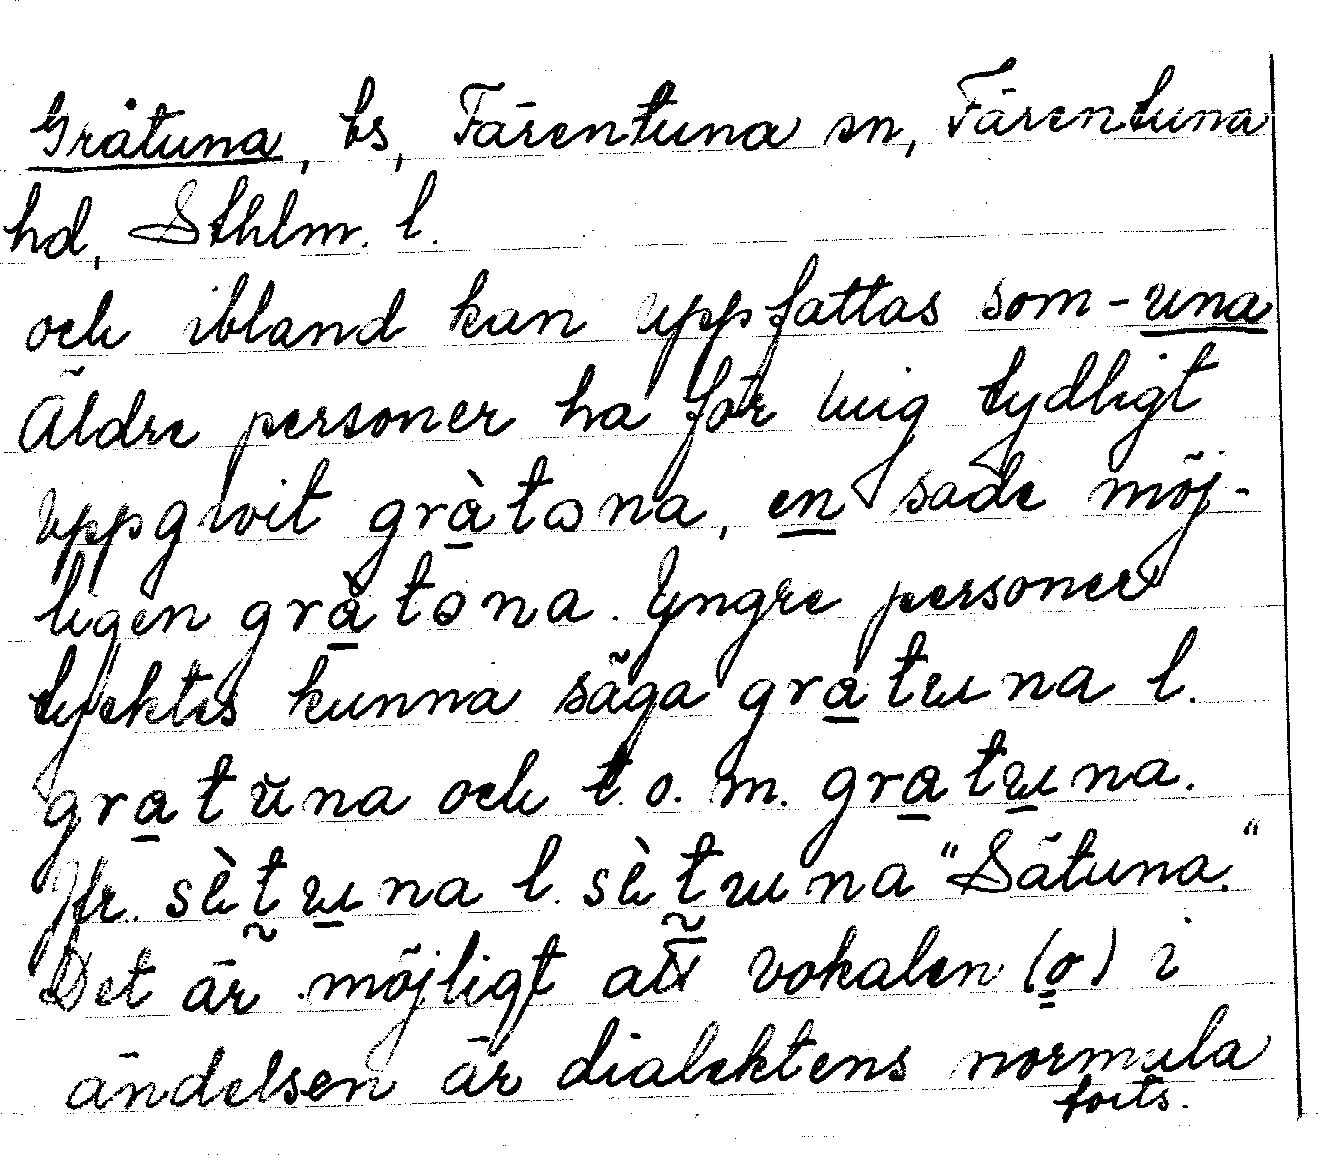 Gråtuna, bs, Färentuna sn, Färentuna
hd, Sthlm. l.
och ibland kan uppfattas som -una
Äldre personer ha för mig tydligt
uppgivit gràtɷna, en sade möj-
ligen gràtɵna. Yngre personer
tycktes kunna säga gratɯna l.
gratŭna och t. o. m. gratɯna.
Jfr. sètɯna l. sètɯna "Sätuna."
Det är möjligt att vokalen (o) i
ändelsen är dialektens normala
forts.